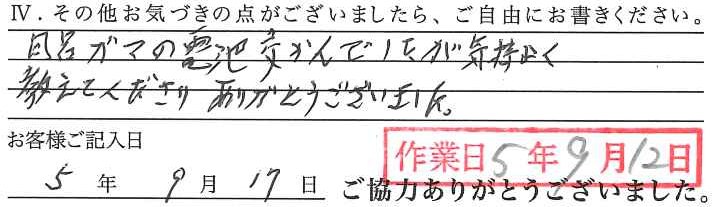 Ⅳ．その他お気づきの点がございましたら、ご自由にお書きください。
風呂ガマの電池交かんでしたが気持よく
教えてくださり ありがとうございました。
お客様ご記入日
作業日 5 年 9 月 12 日
5 年 9 月 17 日 ご協力ありがとうございました。